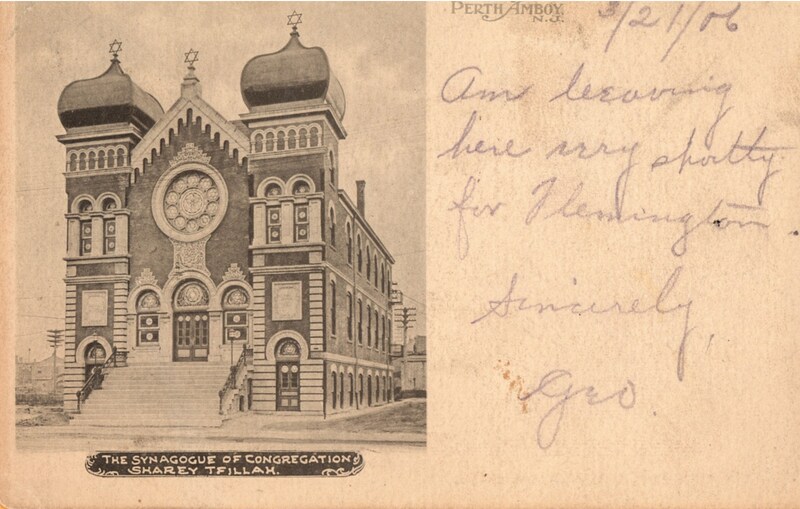 PERTH AMBOY,
N.J.
3/21/06
Am leaving
here very shortly
for Flemington.
Sincerely,
Geo.
THE SYNAGOGUE OF CONGREGATION
SHAREY TFILLAH.